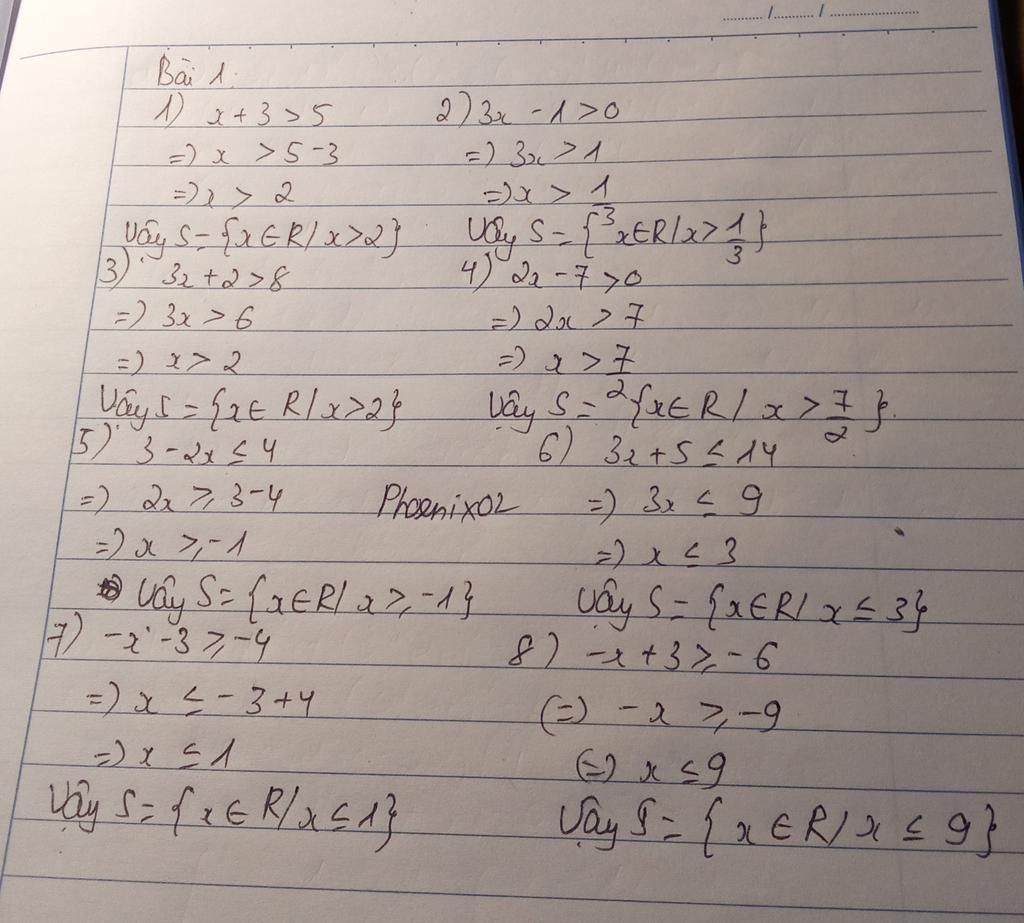 Bài 1.
1) x + 3 > 5
=) x > 5 - 3
=) x > 2
Vậy S = {x ∈ R / x > 2}
2) 3x - 1 > 0
=) 3x > 1
=) x > 1/3
Vậy S = {x ∈ R / x > 1/3}
3) 3x + 2 > 8
=) 3x > 6
=) x > 2
Vậy S = {x ∈ R / x > 2}
4) 2x - 7 > 0
=) 2x > 7
=) x > 7/2
Vậy S = {x ∈ R / x > 7/2}.
5) 3 - 2x ≤ 4
=) 2x ≥ 3 - 4
=) x ≥ -1
Vậy S = {x ∈ R / x ≥ -1}
Phoenix02
6) 3x + 5 ≤ 14
=) 3x ≤ 9
=) x ≤ 3
Vậy S = {x ∈ R / x ≤ 3}
7) -x - 3 ≥ -4
=) x ≤ -3 + 4
=) x ≤ 1
Vậy S = {x ∈ R / x ≤ 1}
8) -x + 3 ≥ -6
(=) -x ≥ -9
(=) x ≤ 9
Vậy S = {x ∈ R / x ≤ 9}